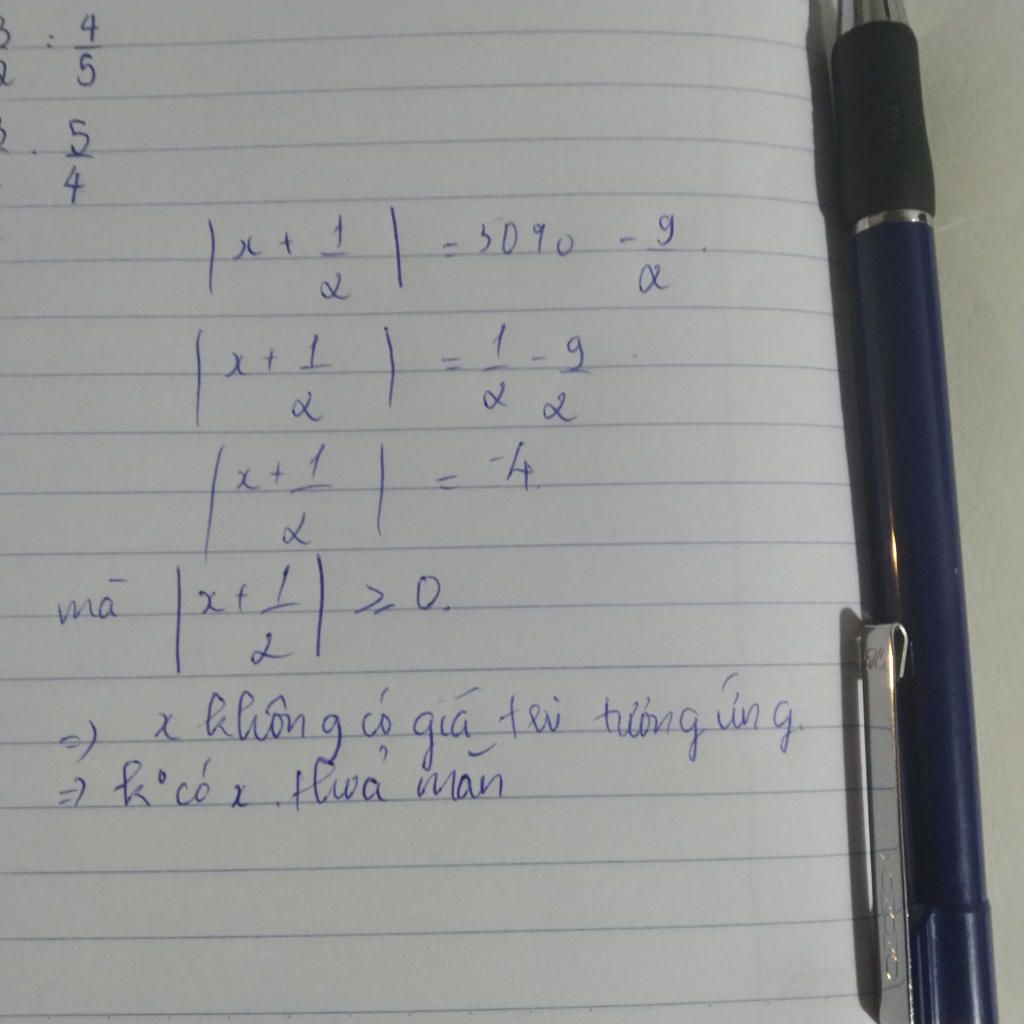 3/2 : 4/5
. 5/4
|x + 1/2| = 50% - 9/2.
|x + 1/2| = 1/2 - 9/2.
|x + 1/2| = -4.
mà |x + 1/2| ≥ 0.
=> x không có giá trị tương ứng.
=> k° có x thoả mãn